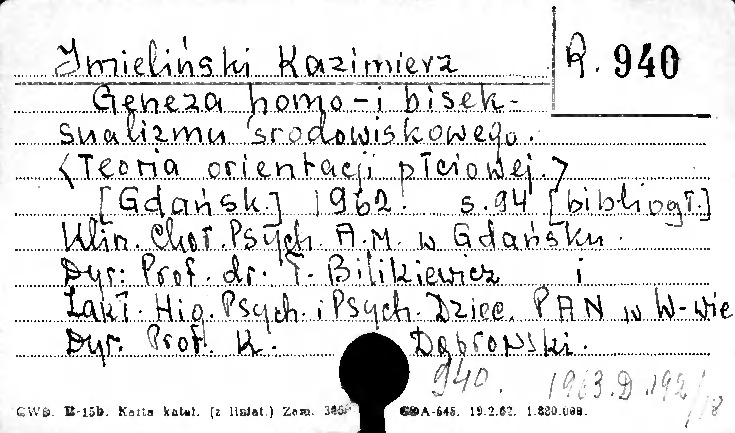 Imieliński Kazimierz
R. 940
Geneza homo-i bisek-
sualizmu środowiskowego.
<Teoria orientacji płciowej.>
[Gdańsk] 1962. s. 94 [bibliogr.]
Klin. Chor. Psych. A.M. w Gdańsku.
Dyr: Prof. dr. T. Bilikiewicz i
Zakł. Hig. Psych. i Psych. Dziec. PAN w W-wie
Dyr. Prof. K. Dąbrowski.
940. 1963.D.192/18
GWD. Karta katal. (z liniat.) Zam. GDA-545. 19.2.62.